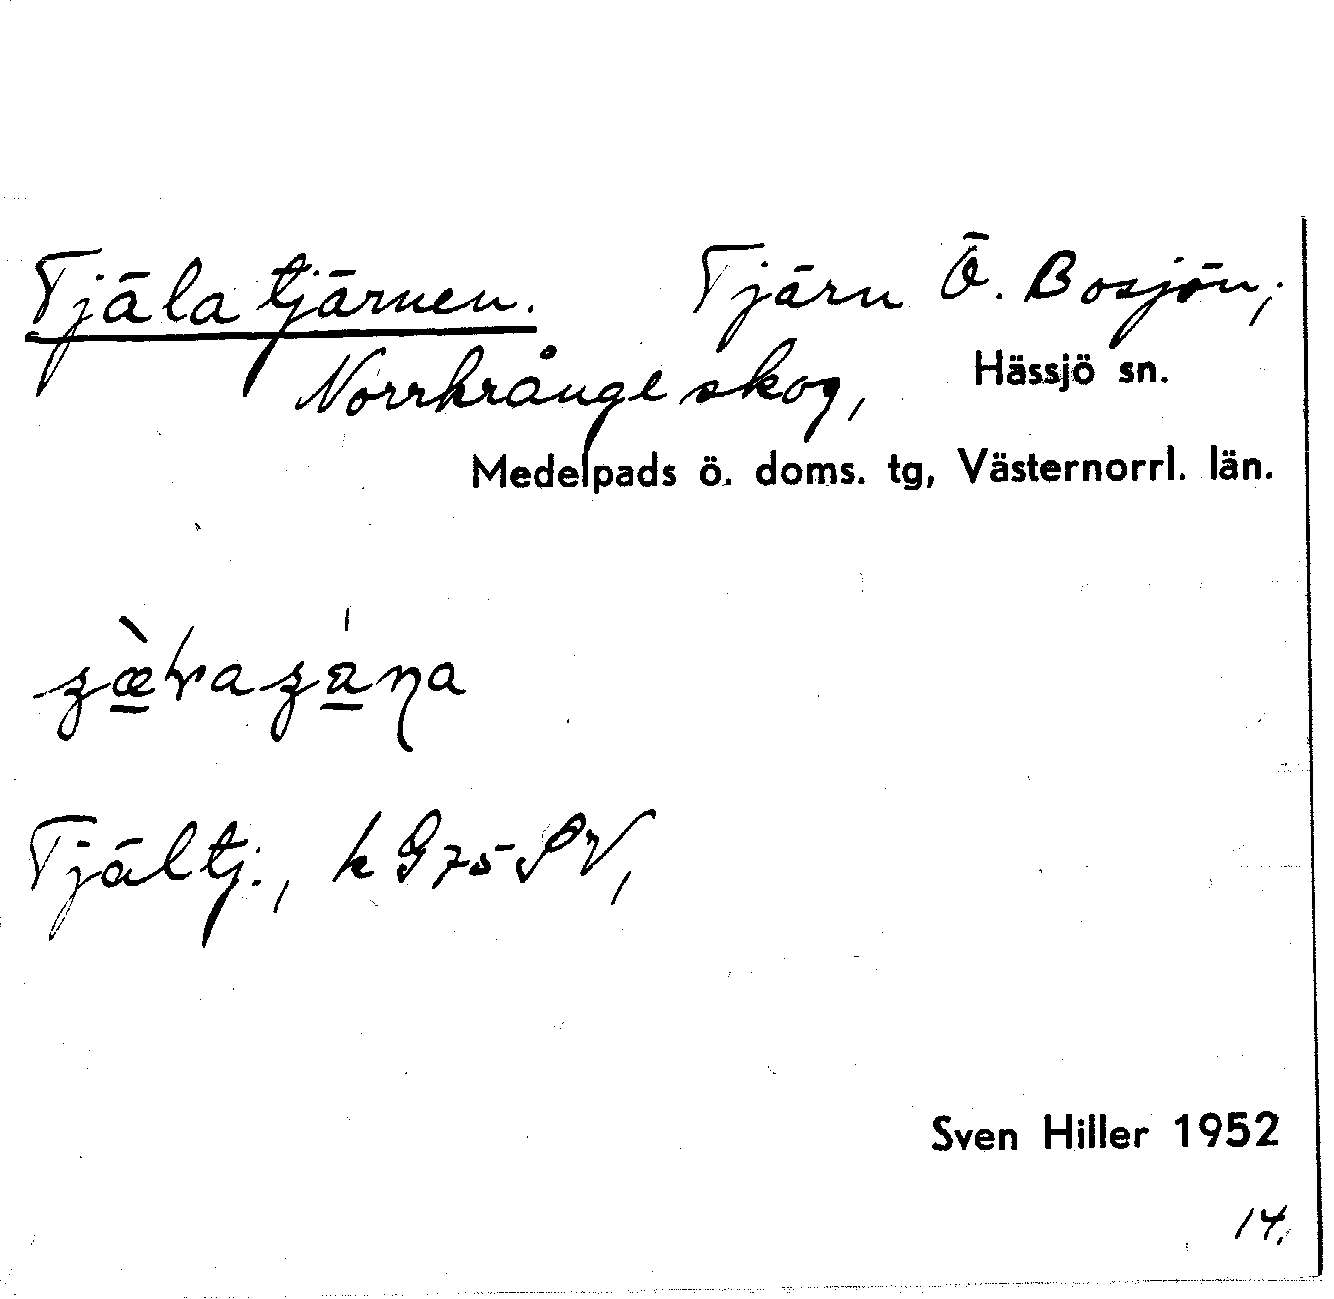 Tjälatjärnen. Tjärn Ö. Bosjön,
Norrkrånge skog, Hässjö sn.
Medelpads ö. doms. tg, Västernorrl. län.
Tjältj., k G75 SV,
Sven Hiller 1952
14.